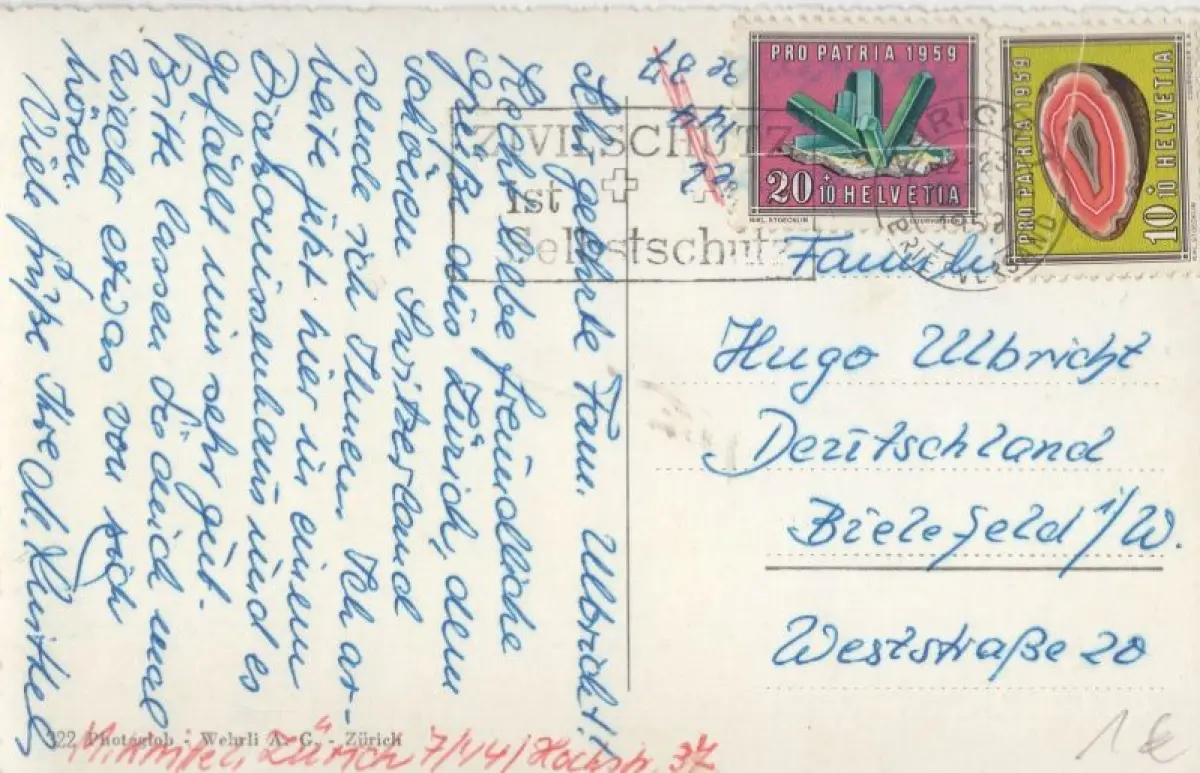 Sehr geehrte Fam. Ulbricht!
Recht liebe freundliche
Grüße aus Zürich, dem
schönen Switzerland
sende ich Ihnen. Ich ar-
beite jetzt hier in einem
Diakonissenhaus und es
gefällt mir sehr gut.
Bitte lassen Sie auch mal
wieder etwas von sich
hören.
Viele Grüße Ihre
ZIVILSCHUTZ
ist
Selbstschutz
PRO PATRIA 1959
20+10 HELVETIA
PRO PATRIA 1959
10+10 HELVETIA
Familie
Hugo Ulbricht
Deutschland
Bielefeld i/W.
Weststraße 20
322 Photoglob - Wehrli A. G. - Zürich
Zürich 7/44/Hochstr. 37
1 €